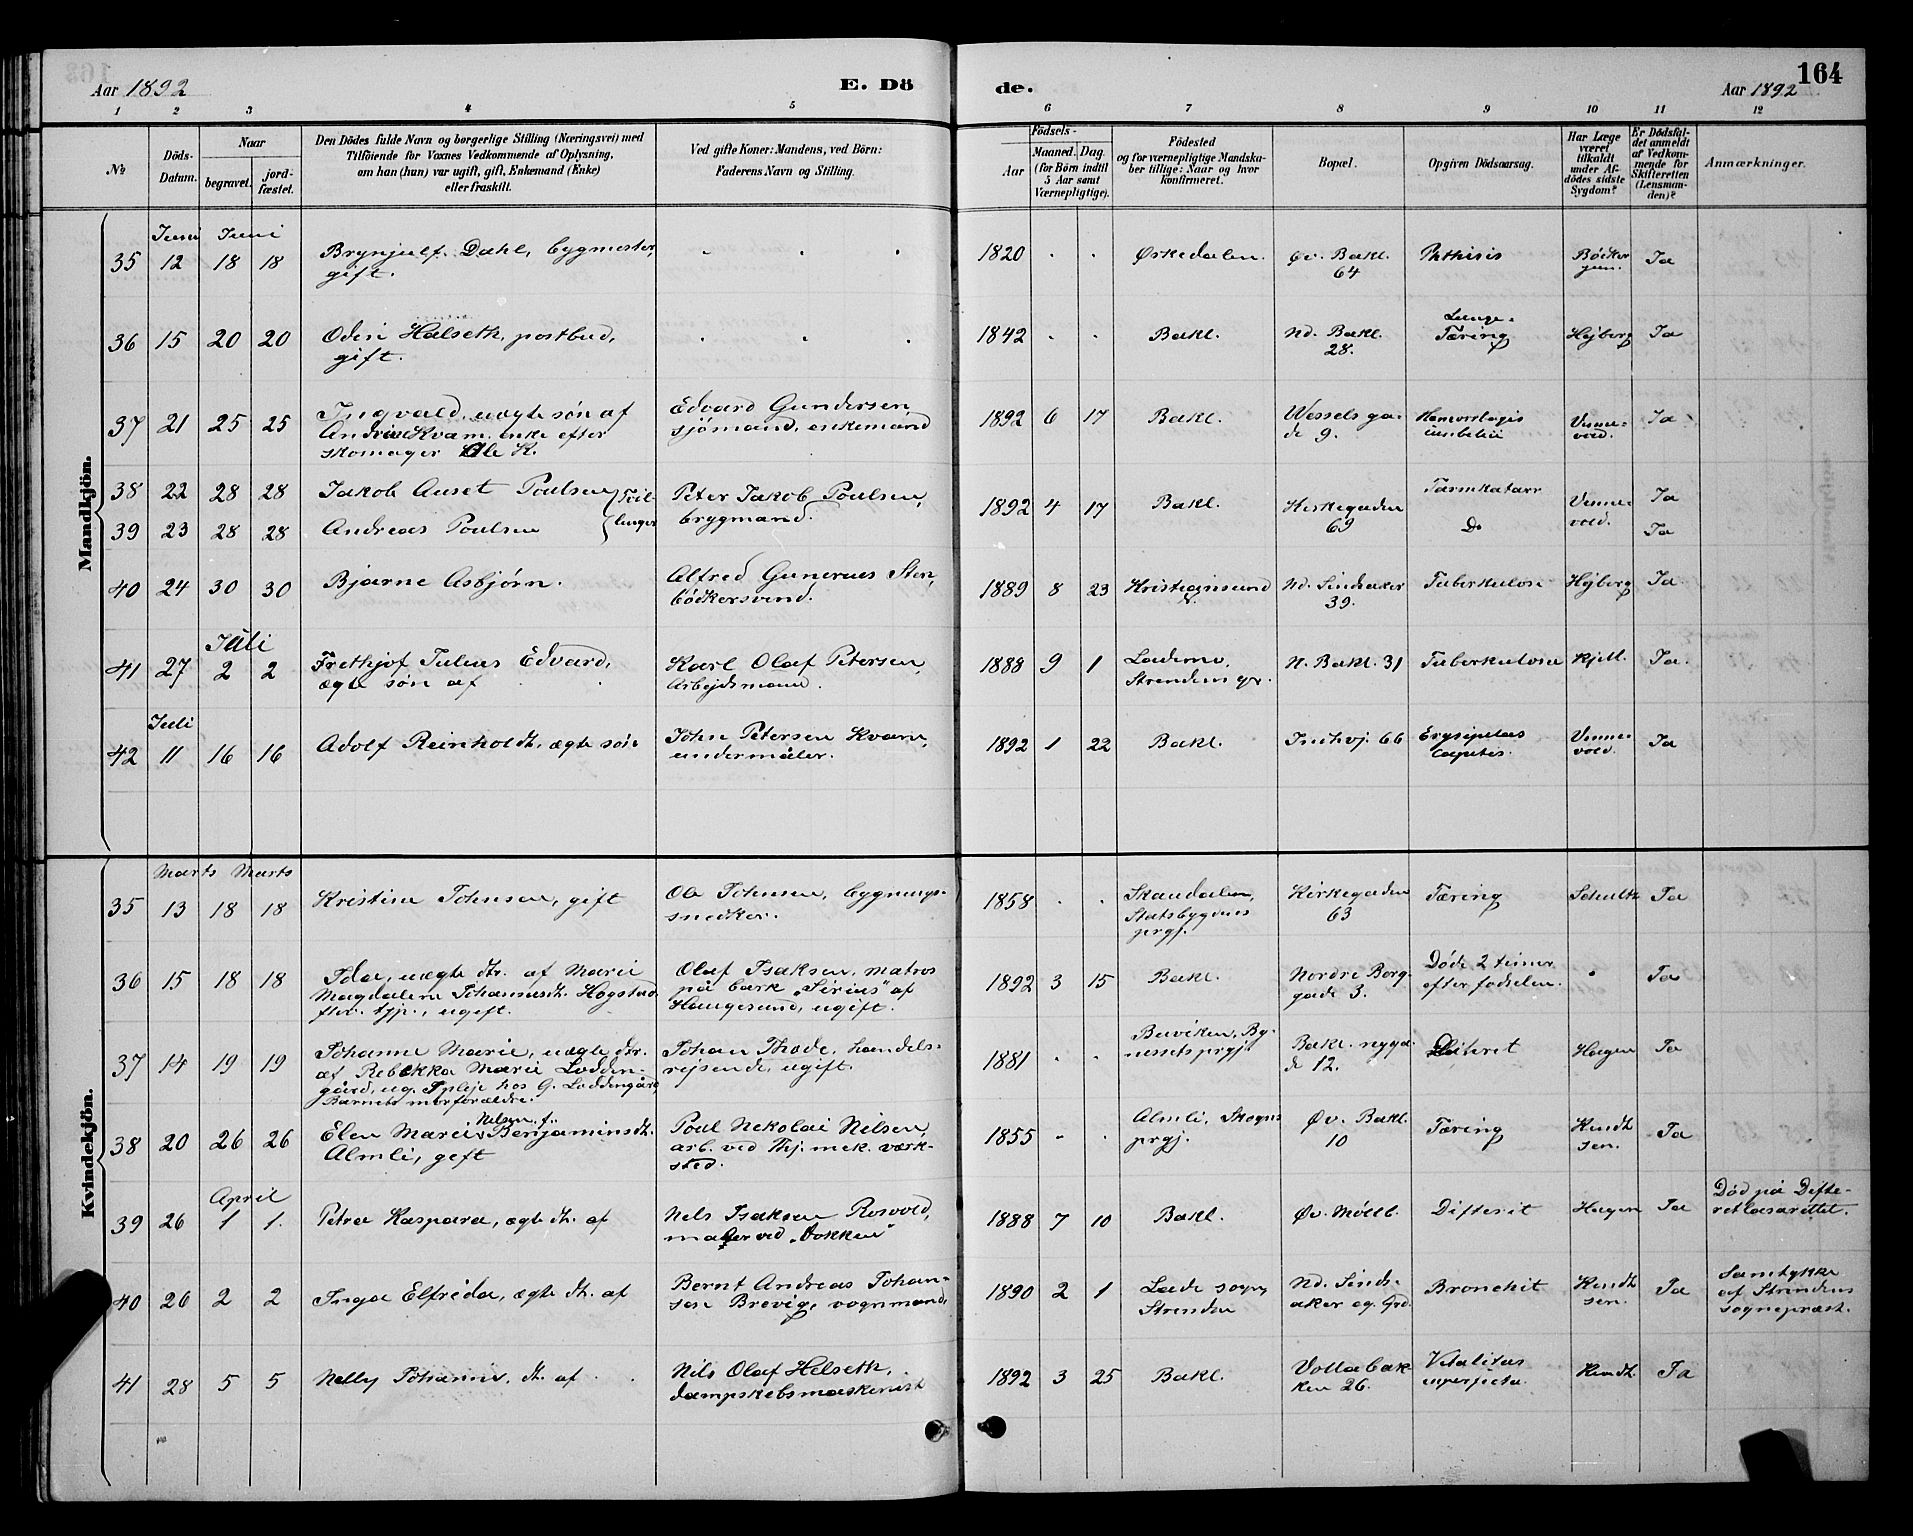 Aar 1892
E. Dö
de.
Aar 1892
164
1 2 3 4 5 6 7 8 9 10 11 12
No
Döds-
Datum.
Naar
begravet.
jord-
fæstet.
Den Dödes fulde Navn og borgerlige Stilling (Næringsvei) med
Tilföiende for Voxnes Vedkommende af Oplysning,
om han (hun) var ugift, gift, Enkemand (Enke)
eller fraskilt.
Ved gifte Koner: Mandens, ved Börn:
Faderens Navn og Stilling.
Födsels-
Aar
Maaned. Dag.
(for Börn indtil
5 Aar samt
Værnepligtige).
Födested
og for værnepligtige Mandska-
ber tillige: Naar og hvor
konfirmeret.
Bopæl.
Opgiven Dödsaarsag.
Har Læge
været
tilkaldt
under Af-
dödes sidste
Sygdom?
Er Dödsfal-
det anmeldt
af Vedkom-
mende for
Skifteretten
(Lensman-
den)?
Anmærkninger.
Mandkjön.
Juni Juni
35 12 18 18 Brynjulf Dahl, bygmester,
gift.
1820 Ørkedalen. Øv. Bakl.
64
Phthisis Ja
36 15 20 20 Odin Halseth, postbud,
gift.
1842 Bakl. Nd. Bakl.
28.
Lunge-
Tæring Højberg Ja
37 21 25 25 Ingvald, uægte søn af
Kvam, enke efter
skomager Ole K.
Edvard Gundersen
sjømand, enkemand
1892 6 17 Bakl. Wessels ga-
de 9.
Venne-
vold. Ja
38 22 28 28 Jakob Auset Poulsen
39 23 28 28 Andreas Poulsen
Tvil-
linger
Peter Jakob Poulsen,
brygmand.
1892 4 17 Bakl. Kirkegaden
69
Tarmkatarr
Do
Venne-
vold.
Ja
Ja
40 24 30 30 Bjarne Asbjørn.
Alfred Gunerius Sten,
bødkersvend.
1889 8 23 Kristiansund Nd. Sindsaker
39.
Tuberkulose Højberg Ja
Juli
41 27 2 2 Frethjof Julius Edvard,
ægte søn af
Karl Olaf Petersen,
Arbejdsmand.
1888 9 1 Lademo,
Strinden
N. Bakl. 31 Tuberkulose Kjell. Ja
Juli
42 11 16 16 Adolf Reinholdt, ægte søn
John Petersen Kvam,
undermåler.
1892 1 22 Bakl. 66 Erysipelas
capitis.
Venne-
vold. Ja
Kvindekjön.
Marts Marts
35 13 18 18 Kristine Johnsen, gift
Ole Johnsen, bygnings-
snedker.
1858 Skaudalen,
Statsbygdens
prgj.
Kirkegaden
63
Tæring Schultz Ja
36 15 18 18 Ida, uægte dtr. af Marie
Magdalena Johannesdt. Hogstad
ugift.
Olaf Isaksen, matros
på bark "Sirius" af
Haugesund, ugift.
1892 3 15 Bakl. Nordre Borg-
gade 3.
Døde 2 timer
efter fødselen. Ja
37 14 19 19 Johanne Marie, uægte dtr.
af Rebekka Marie Lodden-
gård, ug. I pleje hos G. Loddengård
Barnets morforældre.
Johan Thode, handels-
rejsende, ugift.
1881 Buviken, By-
nessets prgj.
Bakl. nyga-
de 12.
Hagen Ja
38 20 26 26 Elen Marie Nelsen f. Benjaminsdt.
Almli, gift
Poul Nekolai Nilsen
arb. ved Thj. mek. værk-
sted.
1855 Almli, Skogns
prgj.
Øv. Bakl.
10
Tæring Knudt-
sen. Ja
April
39 26 1 1. Petra Kaspara, ægte dt. af
Nels Isaksen Rosvold,
ved "Dokken"
1888 7 10 Bakl. Øv. Møllb. Difterit Hagen Ja
Død på Difte-
ritlasarettet.
40 26 2 2 Inga Elfrida, ægte dt. af
Bernt Andreas Johan-
sen Brevig, vognmand,
1890 2 1 Lade sogn,
Strinden
Nd. Sinds-
aker eg. Grd.
Bronchit Knudt-
sen. Ja
Samtykke
af Strindens
sognepræst.
41 28 5 5 Nelly Johanne, dt. af
Nils Olaf Helseth,
dampskebsmaskinist
1892 3 25 Bakl. Vollabak-
ken 26.
Vitalitas
imperfecta. Knudt. Ja